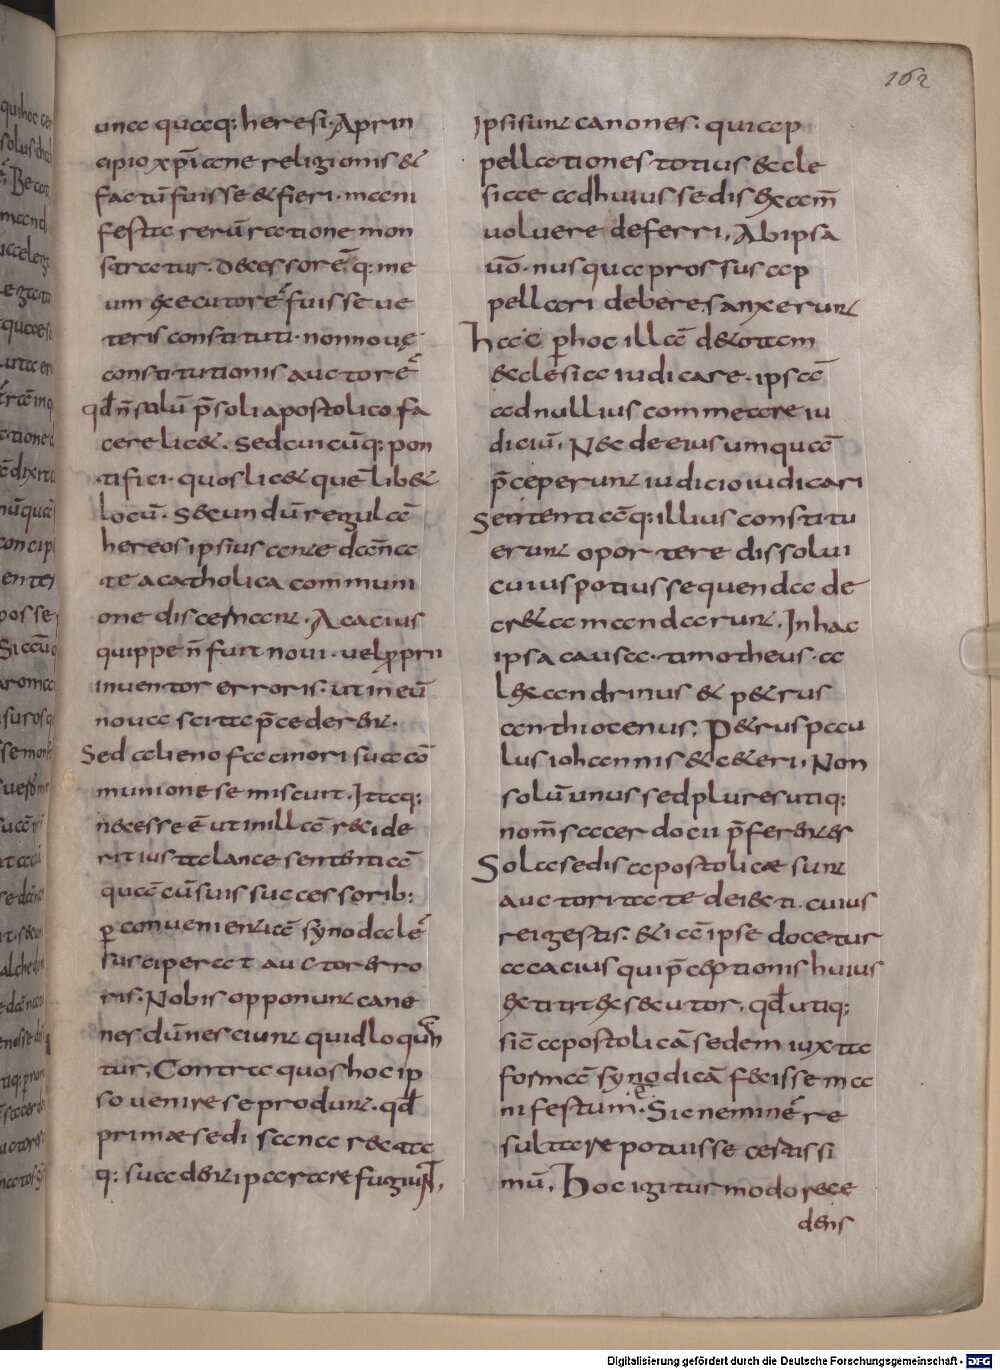 162
una quaq: heresi. A prin
cipio xp̄iane religionis &
factū fuisse & fieri. mani
festa rerū ratione mon
stratur. Decessorēq: me
um executorē fuisse ue
teris constituti. non nouę
constitutionis auctorē
qđ n̄ solū p̄soli apostolico fa
cere lic&. Sed cuicūq: pon
tifici. quos lic& quēlib&
locū. Secundū regulā
hereos ipsius ante dāna
te a catholica communi
one discernant. Acacius
quippe n̄ fuit noui. uel ꝓprii
inuentor erroris. ut in eū
noua scita p̄cederent.
Sed alieno facinori sua cō
munione se miscuit. Itaq:
necesse ē ut in illā recide
rit iusta lance sententiā
quā cū suis successorib:
ꝑ conuenientiā synodalē
suscipera t auctor erro
ris. Nobis opponunt cano
nes dū nesciunt quid loquan
tur. Contra quos hoc ip
so uenire se produnt. qđ
primæ sedi sana recta
q: suadenti parere fugiunt.
Ipsi sunt canones. qui ap
pellationes totius eccle
siae ad huius sedis examē
uoluere deferri. Ab ipsa
uō. nusqua prossus ap
pellari debere sanxerunt
hac ꝑ hoc illā de totam
ecclesia iudicare. ipsā
ad nullius commeare iu
diciū. Nec de eius umquā
p̄ceperunt iudicio iudicari
Sententiāq: illius constitu
erunt oportere dissolui
cuius potius sequenda de
creta mandarunt. In hac
ipsa causa. timotheus a
lexandrinus & petrus
anthiocenus. Petrus pau
lus iohannis & ceteri. Non
solū unus sed plures utiq:
nom̄ sacerdocii p̄ferentes
Sola sedis apostolicæ sunt
auctoritate deiecti. cuius
rei gestis. & iā ipse docetur
acacius qui p̄ceptionis huius
extitit executor. qđ utiq:
sic apostolicā sedem iuxta
formā synodicā fecisse ma
nifestum. Sic neminē re
sultare potuisse certissi
mū. Hoc igitur modo rece
dens
Digitalisierung gefördert durch die Deutsche Forschungsgemeinschaft - DFG